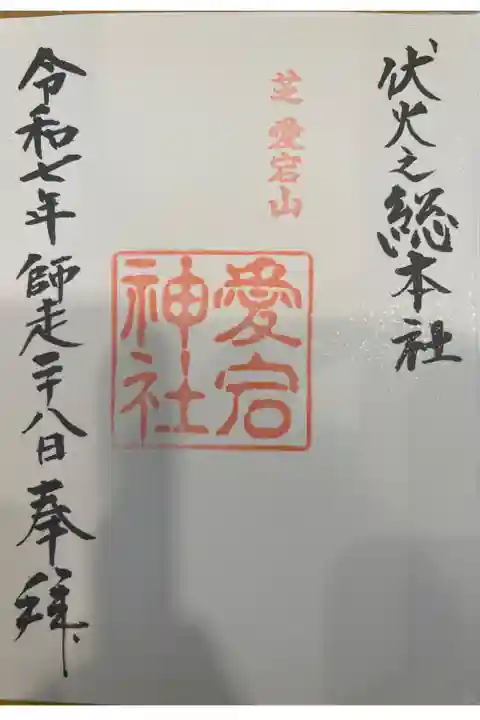 伏火之総本社
芝愛宕山
愛宕
神社
令和七年師走二十八日奉拝